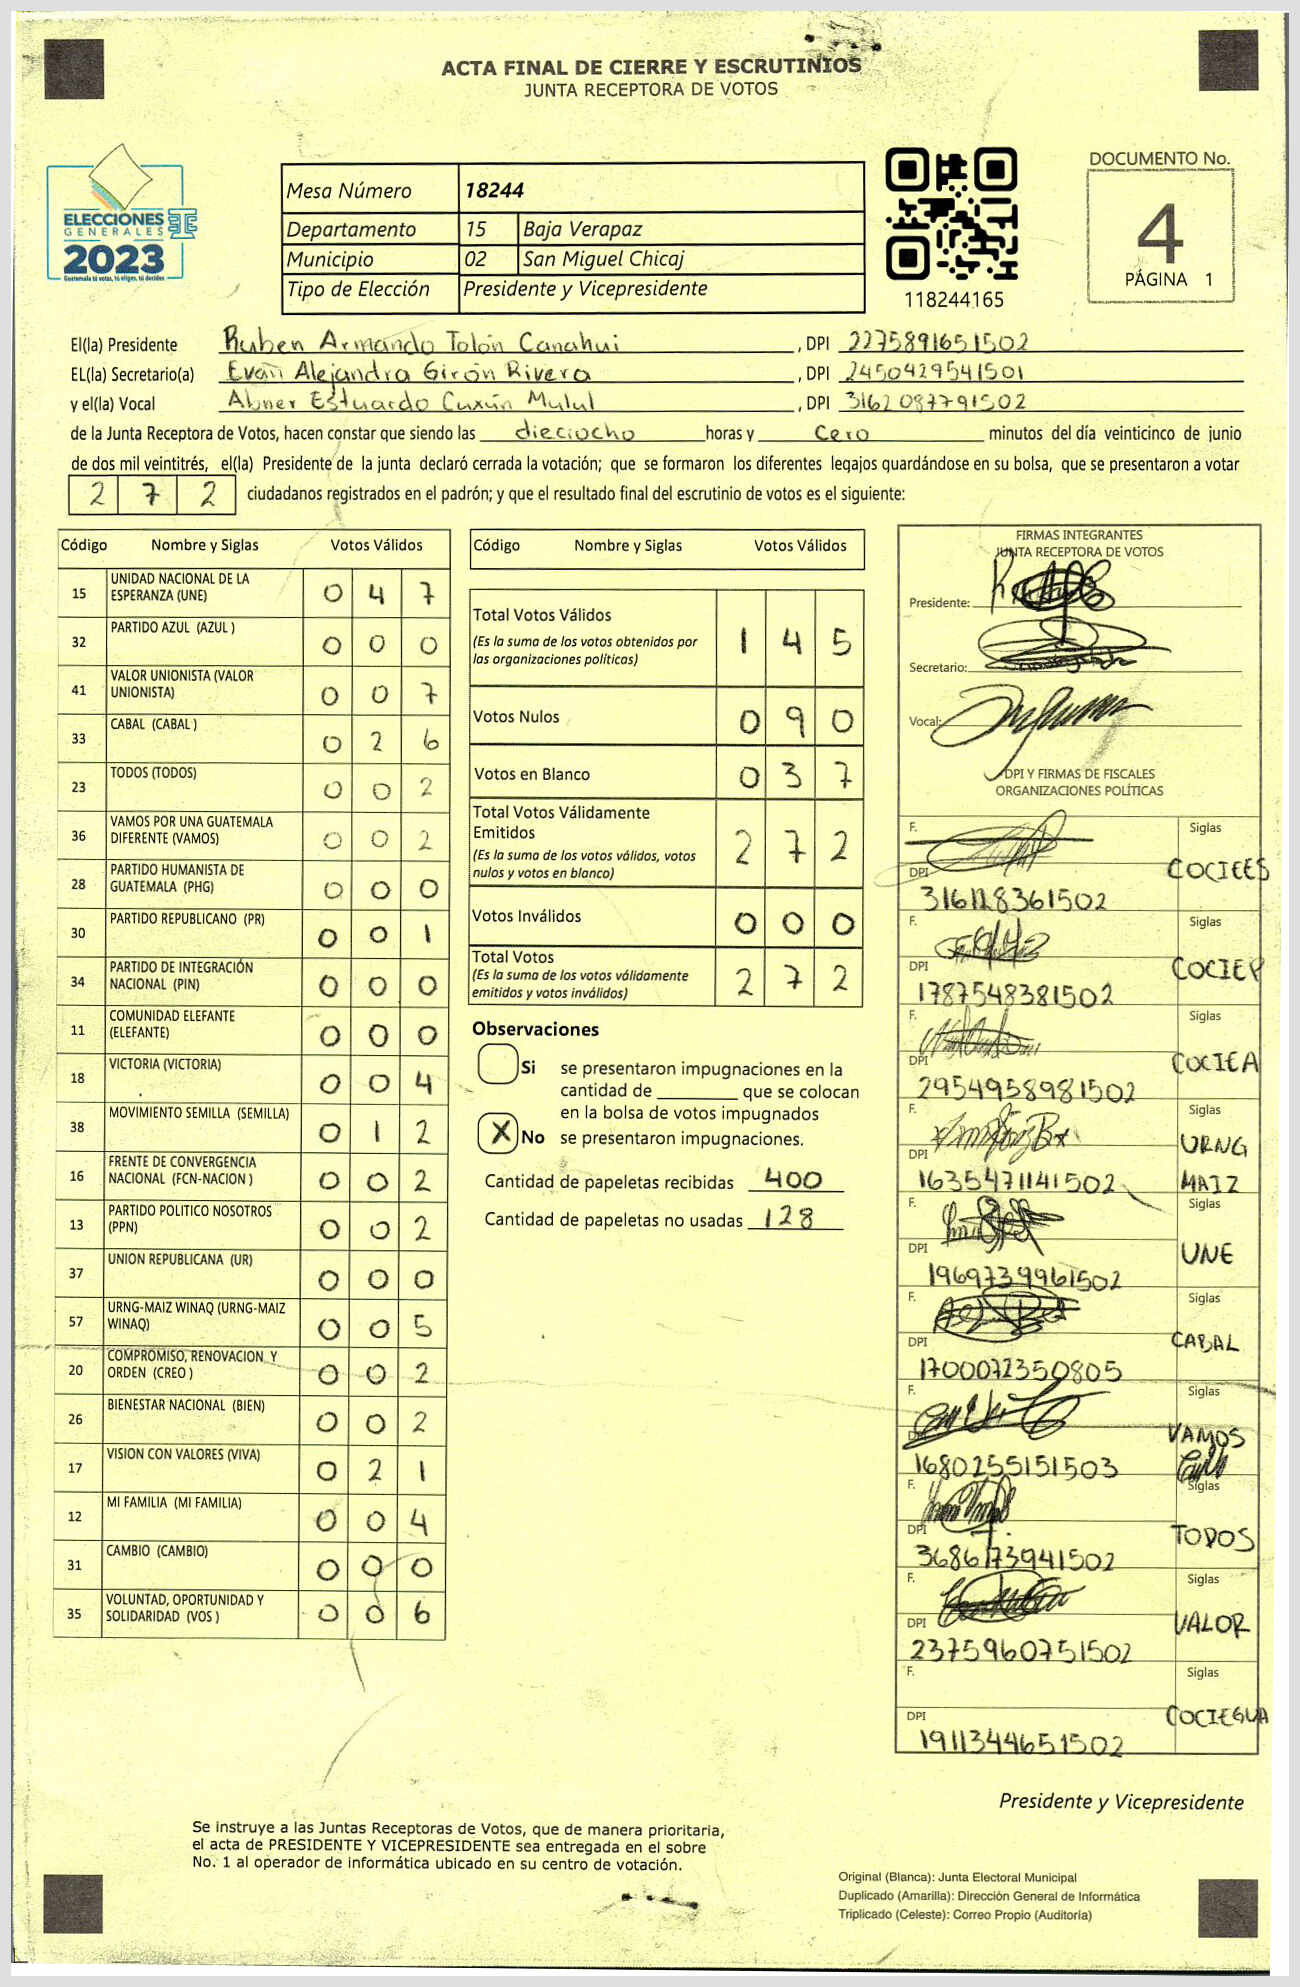 ACTA FINAL DE CIERRE Y ESCRUTINIOS
JUNTA RECEPTORA DE VOTOS
ELECCIONES
GENERALES
2023
Guatemala tú votas, tú eliges, tú decides
TSE
Mesa Número 18244
Departamento 15 Baja Verapaz
Municipio 02 San Miguel Chicaj
Tipo de Elección Presidente y Vicepresidente
118244165
DOCUMENTO No.
4
PÁGINA 1
El(la) Presidente Ruben Armando Tolón Canahui, DPI 2275891651502
EL(la) Secretario(a) Evan Alejandra Girón Rivera, DPI 2450429541501
y el(la) Vocal Abner Estuardo Cuxún Mulul, DPI 3162087791502
de la Junta Receptora de Votos, hacen constar que siendo las dieciocho horas y cero minutos del día veinticinco de junio
de dos mil veintitrés, el(la) Presidente de la junta declaró cerrada la votación; que se formaron los diferentes legajos quardándose en su bolsa, que se presentaron a votar
2 7 2 ciudadanos registrados en el padrón; y que el resultado final del escrutinio de votos es el siguiente:
Código Nombre y Siglas Votos Válidos
15 UNIDAD NACIONAL DE LA ESPERANZA (UNE) 0 4 7
32 PARTIDO AZUL (AZUL ) 0 0 0
41 VALOR UNIONISTA (VALOR UNIONISTA) 0 0 7
33 CABAL (CABAL ) 0 2 6
23 TODOS (TODOS) 0 0 2
36 VAMOS POR UNA GUATEMALA DIFERENTE (VAMOS) 0 0 2
28 PARTIDO HUMANISTA DE GUATEMALA (PHG) 0 0 0
30 PARTIDO REPUBLICANO (PR) 0 0 1
34 PARTIDO DE INTEGRACIÓN NACIONAL (PIN) 0 0 0
11 COMUNIDAD ELEFANTE (ELEFANTE) 0 0 0
18 VICTORIA (VICTORIA) 0 0 4
38 MOVIMIENTO SEMILLA (SEMILLA) 0 1 2
16 FRENTE DE CONVERGENCIA NACIONAL (FCN-NACION ) 0 0 2
13 PARTIDO POLITICO NOSOTROS (PPN) 0 0 2
37 UNION REPUBLICANA (UR) 0 0 0
57 URNG-MAIZ WINAQ (URNG-MAIZ WINAQ) 0 0 5
20 COMPROMISO, RENOVACION Y ORDEN (CREO ) 0 0 2
26 BIENESTAR NACIONAL (BIEN) 0 0 2
17 VISION CON VALORES (VIVA) 0 2 1
12 MI FAMILIA (MI FAMILIA) 0 0 4
31 CAMBIO (CAMBIO) 0 0 0
35 VOLUNTAD, OPORTUNIDAD Y SOLIDARIDAD (VOS ) 0 0 6
Código Nombre y Siglas Votos Válidos
Total Votos Válidos 1 4 5
(Es la suma de los votos obtenidos por
las organizaciones políticas)
Votos Nulos 0 9 0
Votos en Blanco 0 3 7
Total Votos Válidamente
Emitidos 2 7 2
(Es la suma de los votos válidos, votos
nulos y votos en blanco)
Votos Inválidos 0 0 0
Total Votos 2 7 2
(Es la suma de los votos válidamente
emitidos y votos inválidos)
Observaciones
Si se presentaron impugnaciones en la
cantidad de ________ que se colocan
en la bolsa de votos impugnados
X No se presentaron impugnaciones.
Cantidad de papeletas recibidas 400
Cantidad de papeletas no usadas 128
FIRMAS INTEGRANTES
JUNTA RECEPTORA DE VOTOS
Presidente:
Secretario:
Vocal:
DPI Y FIRMAS DE FISCALES
ORGANIZACIONES POLÍTICAS
F. Siglas
COCIEES
DPI
316128361502
F. Siglas
COCIEP
DPI
1787548381502
F. Siglas
COCIEA
DPI
2954958981502
F. Siglas
URNG
MAIZ
DPI
1635471141502
F. Siglas
UNE
DPI
1969739961502
F. Siglas
CABAL
DPI
1700072350805
F. Siglas
VAMOS
DPI
1680255151503
F. Siglas
TODOS
DPI
3686173941502
F. Siglas
VALOR
DPI
2375960751502
F. Siglas
COCIEGUA
DPI
1911344651502
Presidente y Vicepresidente
Se instruye a las Juntas Receptoras de Votos, que de manera prioritaria,
el acta de PRESIDENTE Y VICEPRESIDENTE sea entregada en el sobre
No. 1 al operador de informática ubicado en su centro de votación.
Original (Blanca): Junta Electoral Municipal
Duplicado (Amarilla): Dirección General de Informática
Triplicado (Celeste): Correo Propio (Auditoría)